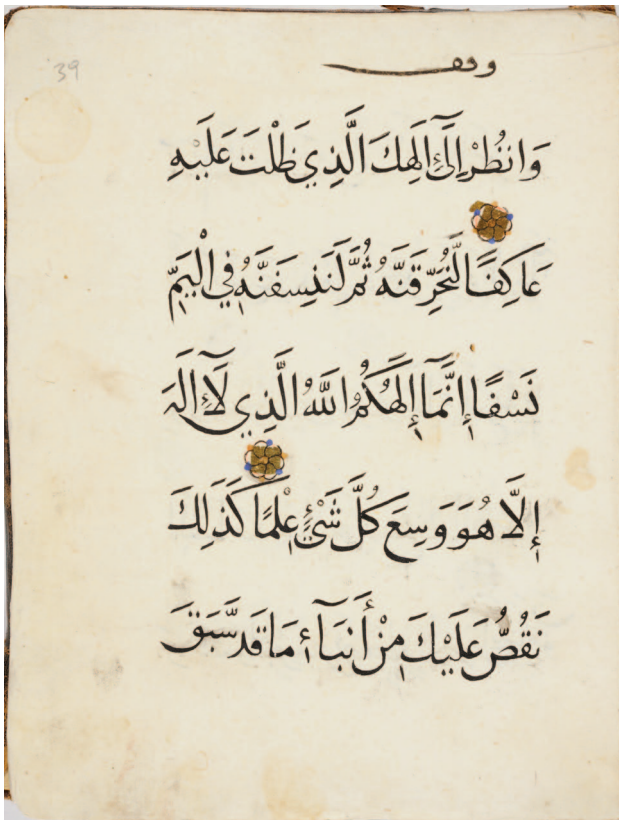 39
وقف
وَانْظُرْ إِلَىٰٓ إِلَٰهِكَ الَّذِي ظَلْتَ عَلَيْهِ
عَاكِفًا لَّنُحَرِّقَنَّهُ ثُمَّ لَنَنسِفَنَّهُ فِي الْيَمِّ
نَسْفًا إِنَّمَآ إِلَٰهُكُمُ اللَّهُ الَّذِي لَآ إِلَٰهَ
إِلَّا هُوَ وَسِعَ كُلَّ شَيْءٍ عِلْمًا كَذَٰلِكَ
نَقُصُّ عَلَيْكَ مِنْ أَنبَآءِ مَا قَد سَّبَقَ